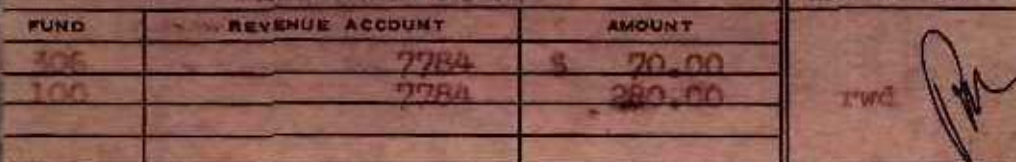 FUND REVENUE ACCOUNT AMOUNT
306 7784 $ 70.00
100 7784 280.00
rwd